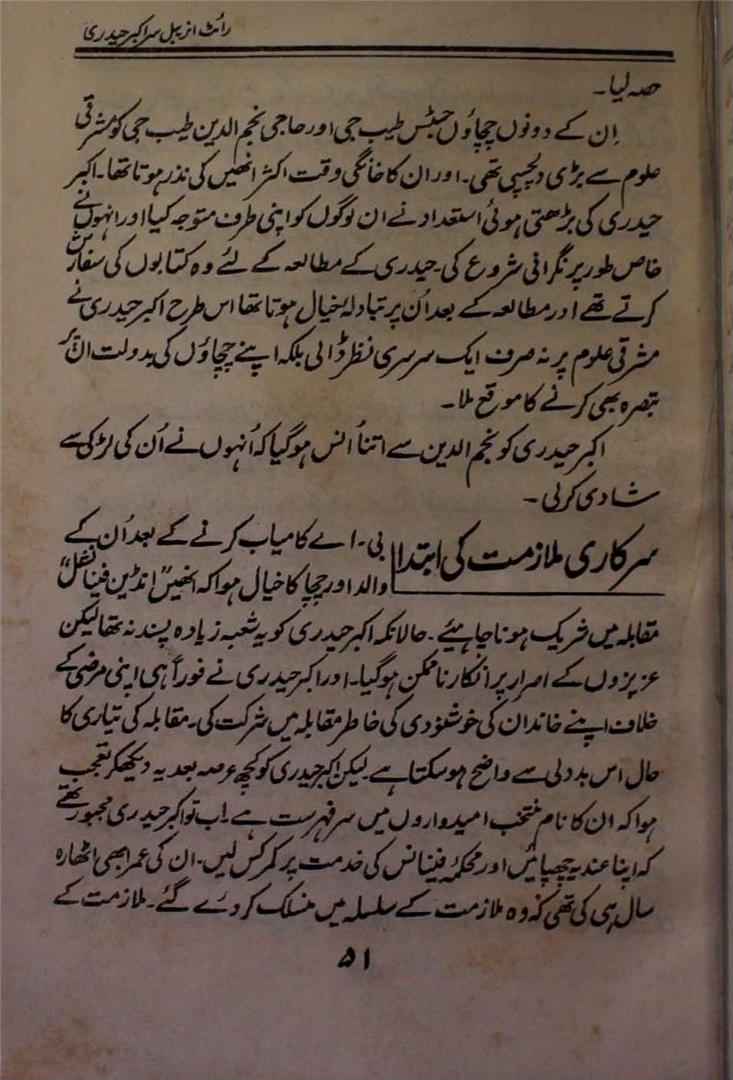 رائٹ انریبل سر اکبر حیدری
حصہ لیا۔
اِن کے دونوں چچاؤں جسٹس طیب جی اور حاجی نجم الدین طیب جی کو مشرقی
علوم سے بڑی دلچسپی تھی۔ اور ان کا خانگی وقت اکثر انھیں کی نذر ہوتا تھا۔ اکبر
حیدری کی بڑھتی ہوئی استعداد نے ان لوگوں کو اپنی طرف متوجہ کیا اور انہوں نے
خاص طور پر نگرانی شروع کی۔ حیدری کے مطالعہ کے لئے وہ کتابوں کی سفارش
کرتے تھے اور مطالعہ کے بعد اُن پر تبادلۂ خیال ہوتا تھا اس طرح اکبر حیدری نے
مشرقی علوم پر نہ صرف ایک سرسری نظر ڈالی بلکہ اپنے چچاؤں کی بدولت ان پر
تبصرہ بھی کرنے کا موقع ملا۔
اکبر حیدری کو نجم الدین سے اتنا اُنس ہو گیا کہ اُنہوں نے اُن کی لڑکی سے
شادی کر لی۔
سرکاری ملازمت کی ابتدا
بی۔ اے کامیاب کرنے کے بعد اُن کے
والد اور چچا کا خیال ہوا کہ انھیں "انڈین فینانشل"
مقابلہ میں شریک ہونا چاہیئے۔ حالانکہ اکبر حیدری کو یہ شعبہ زیادہ پسند نہ تھا لیکن
عزیزوں کے اصرار پر انکار ناممکن ہو گیا۔ اور اکبر حیدری نے فوراً ہی اپنی مرضی کے
خلاف اپنے خاندان کی خوشنودی کی خاطر مقابلہ میں شرکت کی۔ مقابلہ کی تیاری کا
حال اس بددلی سے واضح ہو سکتا ہے۔ لیکن اکبر حیدری کو کچھ عرصہ بعد یہ دیکھکر تعجب
ہوا کہ ان کا نام منتخب امیدواروں میں سر فہرست ہے۔ اب تو اکبر حیدری مجبور تھے
کہ اپنا عندیہ چھپائیں اور محکمۂ فینانس کی خدمت پر کمر کس لیں۔ ان کی عمر ابھی اٹھارہ
سال ہی کی تھی کہ وہ ملازمت کے سلسلہ میں منسلک کر دئے گئے۔ ملازمت کے
۵۱